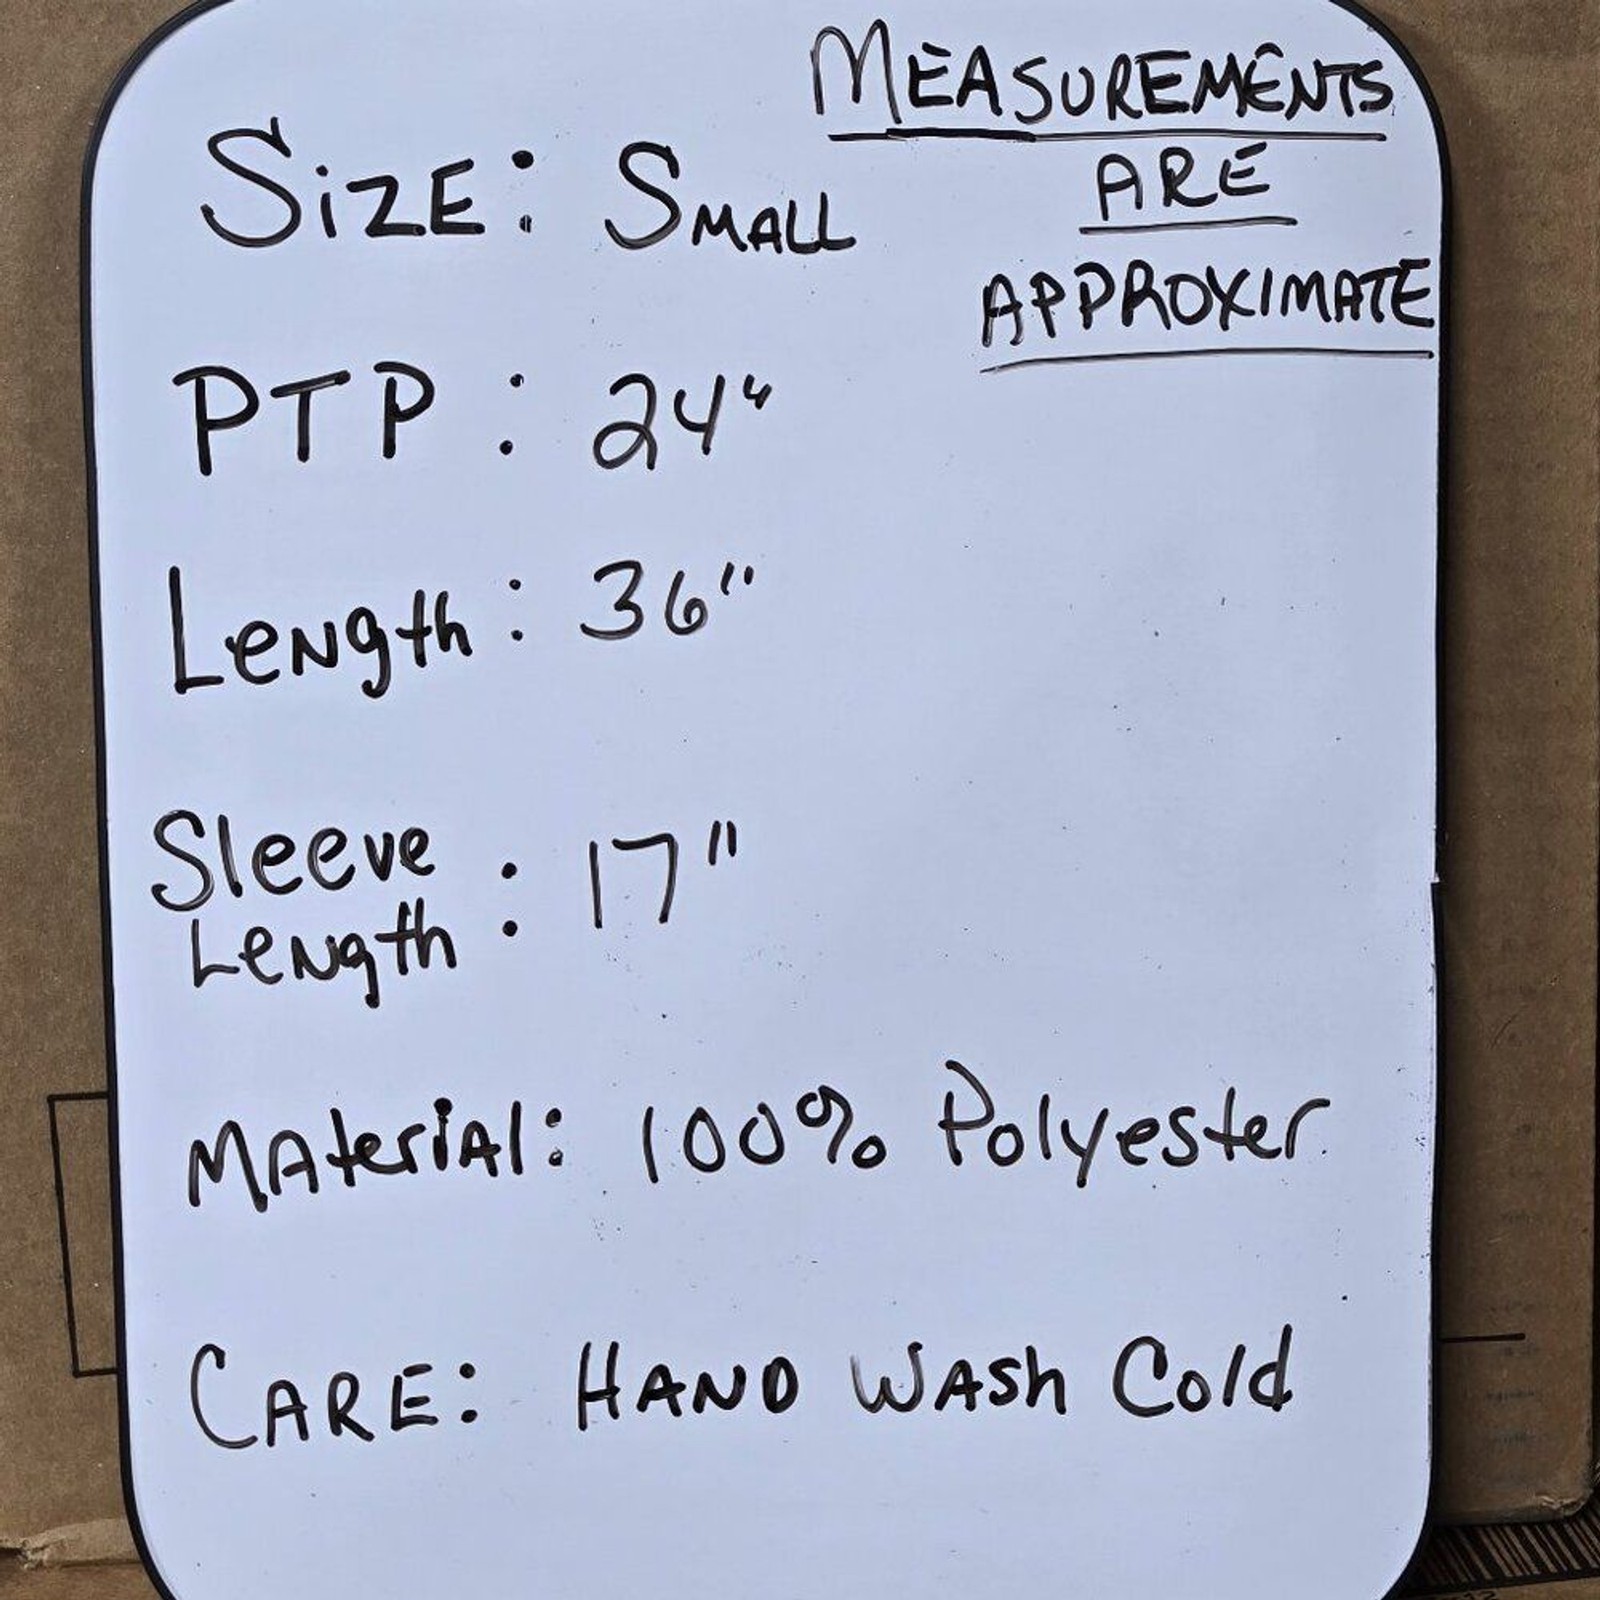 MEASUREMENTS
ARE
APPROXIMATE
SiZE: SMALL
PTP: 24"
LeNgth: 36"
Sleeve
LeNgth: 17"
MAteriAl: 100% Polyester
CARE: HAND WASh Cold